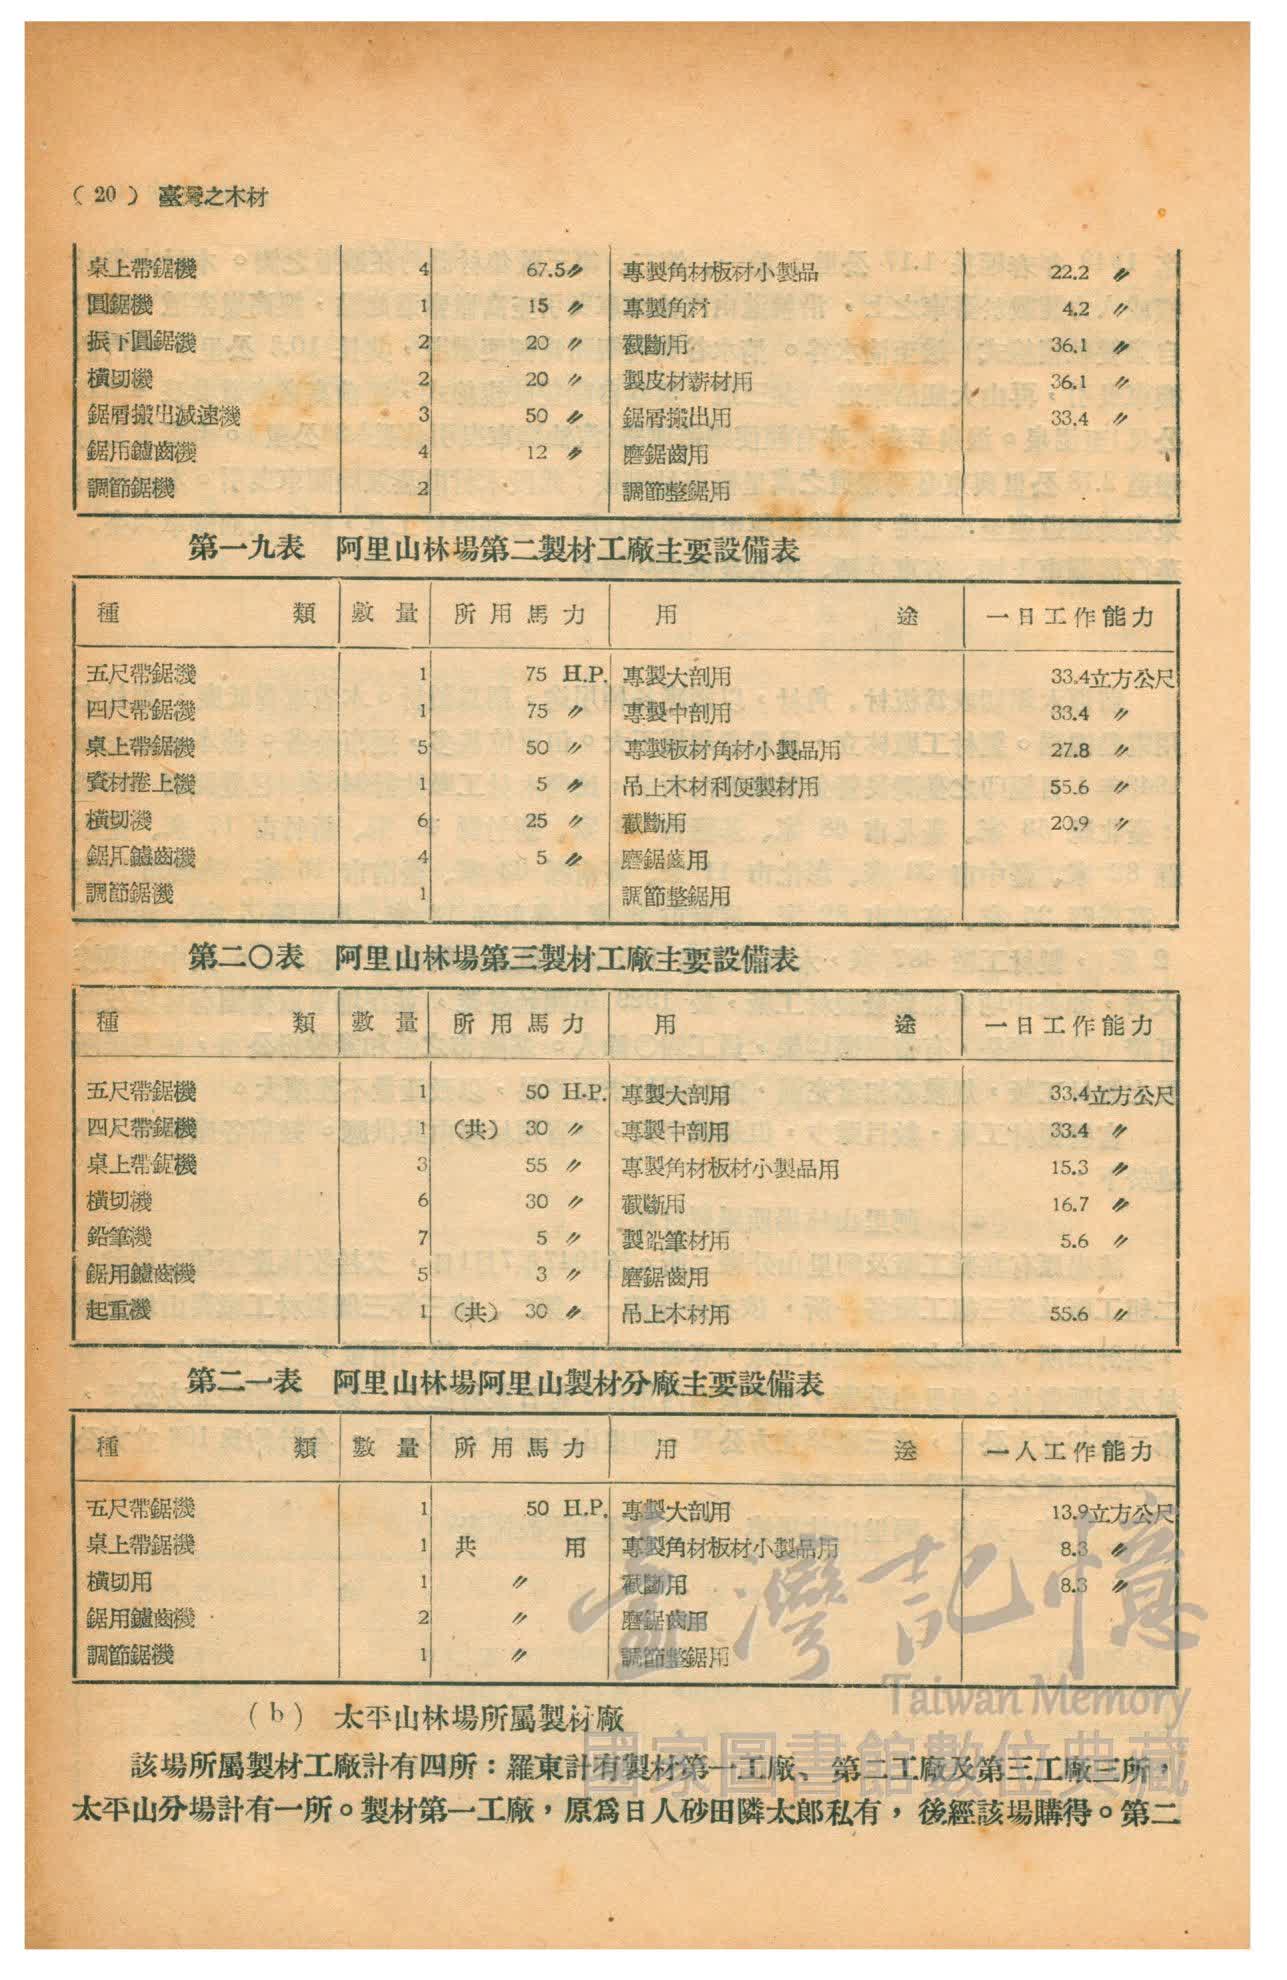 ( 20 ) 臺灣之木材
桌上帶鋸機 4 67.5〃 專製角材板材小製品 22.2 〃
圓鋸機 1 15 〃 專製角材 4.2 〃
振下圓鋸機 2 20 〃 截斷用 36.1 〃
橫切機 2 20 〃 製皮材薪材用 36.1 〃
鋸屑搬出減速機 3 50 〃 鋸屑搬出用 33.4 〃
鋸用鑢齒機 4 12 〃 磨鋸齒用
調節鋸機 2 調節整鋸用
第一九表 阿里山林場第二製材工廠主要設備表
種類 數量 所用馬力 用途 一日工作能力
五尺帶鋸機 1 75 H.P. 專製大剖用 33.4立方公尺
四尺帶鋸機 1 75 〃 專製中剖用 33.4 〃
桌上帶鋸機 5 50 〃 專製板材角材小製品用 27.8 〃
資材捲上機 1 5 〃 吊上木材利便製材用 55.6 〃
橫切機 6 25 〃 截斷用 20.9 〃
鋸用鑢齒機 4 5 〃 磨鋸齒用
調節鋸機 1 調節整鋸用
第二〇表 阿里山林場第三製材工廠主要設備表
種類 數量 所用馬力 用途 一日工作能力
五尺帶鋸機 1 50 H.P. 專製大剖用 33.4立方公尺
四尺帶鋸機 1 (共) 30 〃 專製中剖用 33.4 〃
桌上帶鋸機 3 55 〃 專製角材板材小製品用 15.3 〃
橫切機 6 30 〃 截斷用 16.7 〃
鉛筆機 7 5 〃 製鉛筆材用 5.6 〃
鋸用鑢齒機 5 3 〃 磨鋸齒用
起重機 1 (共) 30 〃 吊上木材用 55.6 〃
第二一表 阿里山林場阿里山製材分廠主要設備表
種類 數量 所用馬力 用途 一人工作能力
五尺帶鋸機 1 50 H.P. 專製大剖用 13.9立方公尺
桌上帶鋸機 1 共用 專製角材板材小製品用 8.3 〃
橫切用 1 〃 截斷用 8.3 〃
鋸用鑢齒機 2 〃 磨鋸齒用
調節鋸機 1 〃 調節整鋸用
(b) 太平山林場所屬製材廠
該場所屬製材工廠計有四所：羅東計有製材第一工廠、第二工廠及第三工廠三所，
太平山分場計有一所。製材第一工廠，原爲日人砂田隣太郎私有，後經該場購得。第二
臺灣記憶
Taiwan Memory
國家圖書館數位典藏